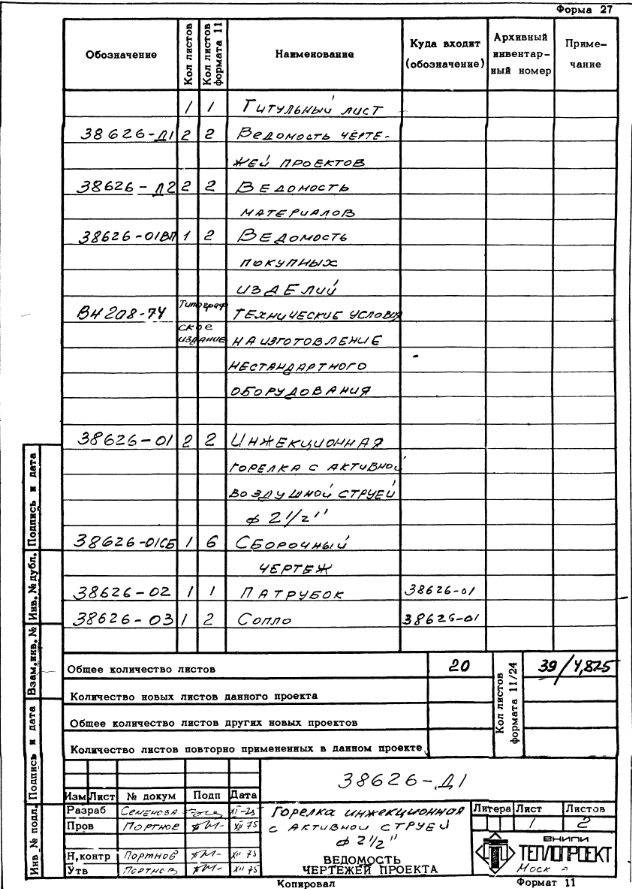 Форма 27
Обозначение
Кол листов
Кол листов формата 11
Наименование
Куда входит (обозначение)
Архивный инвентарный номер
Примечание
1 1 Титульный лист
38626-Д1 2 2 Ведомость черте-
жей проектов
38626-Д2 2 2 Ведомость
материалов
38626-01ВП 1 2 Ведомость
покупных
изделий
ВН 208-74 Типограф Технические условия
ское издание на изготовление
нестандартного
оборудования
38626-01 2 2 Инжекционная
горелка с активной
воздушной струей
ф 2 1/2"
38626-01СБ 1 6 Сборочный
чертеж
38626-02 1 1 Патрубок 38626-01
38626-03 1 2 Сопло 38626-01
Общее количество листов 20
Кол листов формата 11/24
39/4,825
Количество новых листов данного проекта
Общее количество листов других новых проектов
Количество листов повторно примененных в данном проекте
38626-Д1
Изм Лист № докум Подп Дата
Разраб Семенова XI-25
Пров Портнов XII 75
Н.контр Портнов XII 75
Утв Портнов XII 75
Горелка инжекционная
с активной струей
ф 2 1/2"
ВЕДОМОСТЬ
ЧЕРТЕЖЕЙ ПРОЕКТА
Литера Лист Листов
1 2
ВНИПИ
ТЕПЛОПРОЕКТ
Копировал
Формат 11
Инв № подл. Подпись и дата Взам.инв. № Инв. № дубл. Подпись и дата